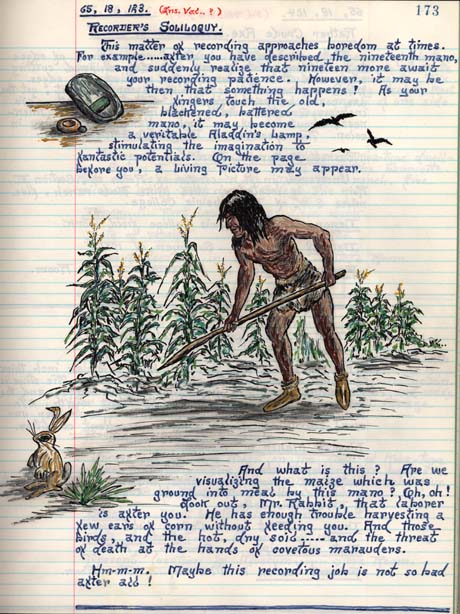 65, 18, 123. (Ans. Vat..?)
173
RECORDER'S SOLILOQUY.
This matter of recording approaches boredom at times.
For example.....after you have described the nineteenth mano,
and suddenly realise that nineteen more await
your recording patience. However, it may be
then that something happens! As your
fingers touch the old,
blackened, battered
mano, it may become
a veritable Aladdin's Lamp,
stimulating the imagination to
fantastic potentials. On the page
before you, a living picture may appear.
And what is this? Are we
visualizing the maize which was
ground into meal by this mano? Oh, oh!
Look out, Mr. Rabbit, that laborer
is after you. He has enough trouble harvesting a
few ears of corn without feeding you. And those
birds, and the hot, dry soil.....and the threat
of death at the hands of covetous marauders.
Hm-m-m. Maybe this recording job is not so bad
after all!